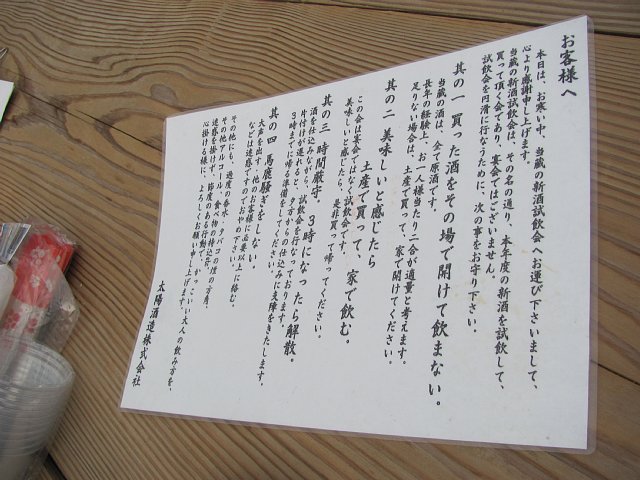 お客様へ
本日は、お寒い中、当蔵の新酒試飲会へお運び下さいまして、
心より感謝申し上げます。
当蔵の新酒試飲会は、その名の通り、本年度の新酒を試飲して、
買って頂く会であり、宴会ではございません。
試飲会を円滑に行なうために、次の事をお守り下さい。
其の一 買った酒をその場で開けて飲まない。
当蔵の酒は、全て原酒です。
長年の経験上、お一人様当たり二合が適量と考えます。
足りない場合は、土産で買って、家で開けてください。
其の二 美味しいと感じたら
土産で買って、家で飲む。
この会は宴会ではなく試飲会です。
美味しいと感じたら、是非買って帰ってください。
其の三 時間厳守。3時になったら解散。
酒を仕込みながら、試飲会を行なっております。
片付けが遅れると、夕方からの仕込みに支障をきたします。
3時までに帰る準備をしてください。
其の四 馬鹿騒ぎをしない。
大声を出す、他のお客様に必要以上に絡む。
などは迷惑ですのでおやめ下さい。
その他にも、過度の香水、タバコの煙の方角、
その他アルコール、食べ物の持込等、
迷惑を掛けず、節度のある行動で、かっこいい大人の飲み方を、
心掛ける様に、よろしくお願い申し上げます。
太陽酒造株式会社